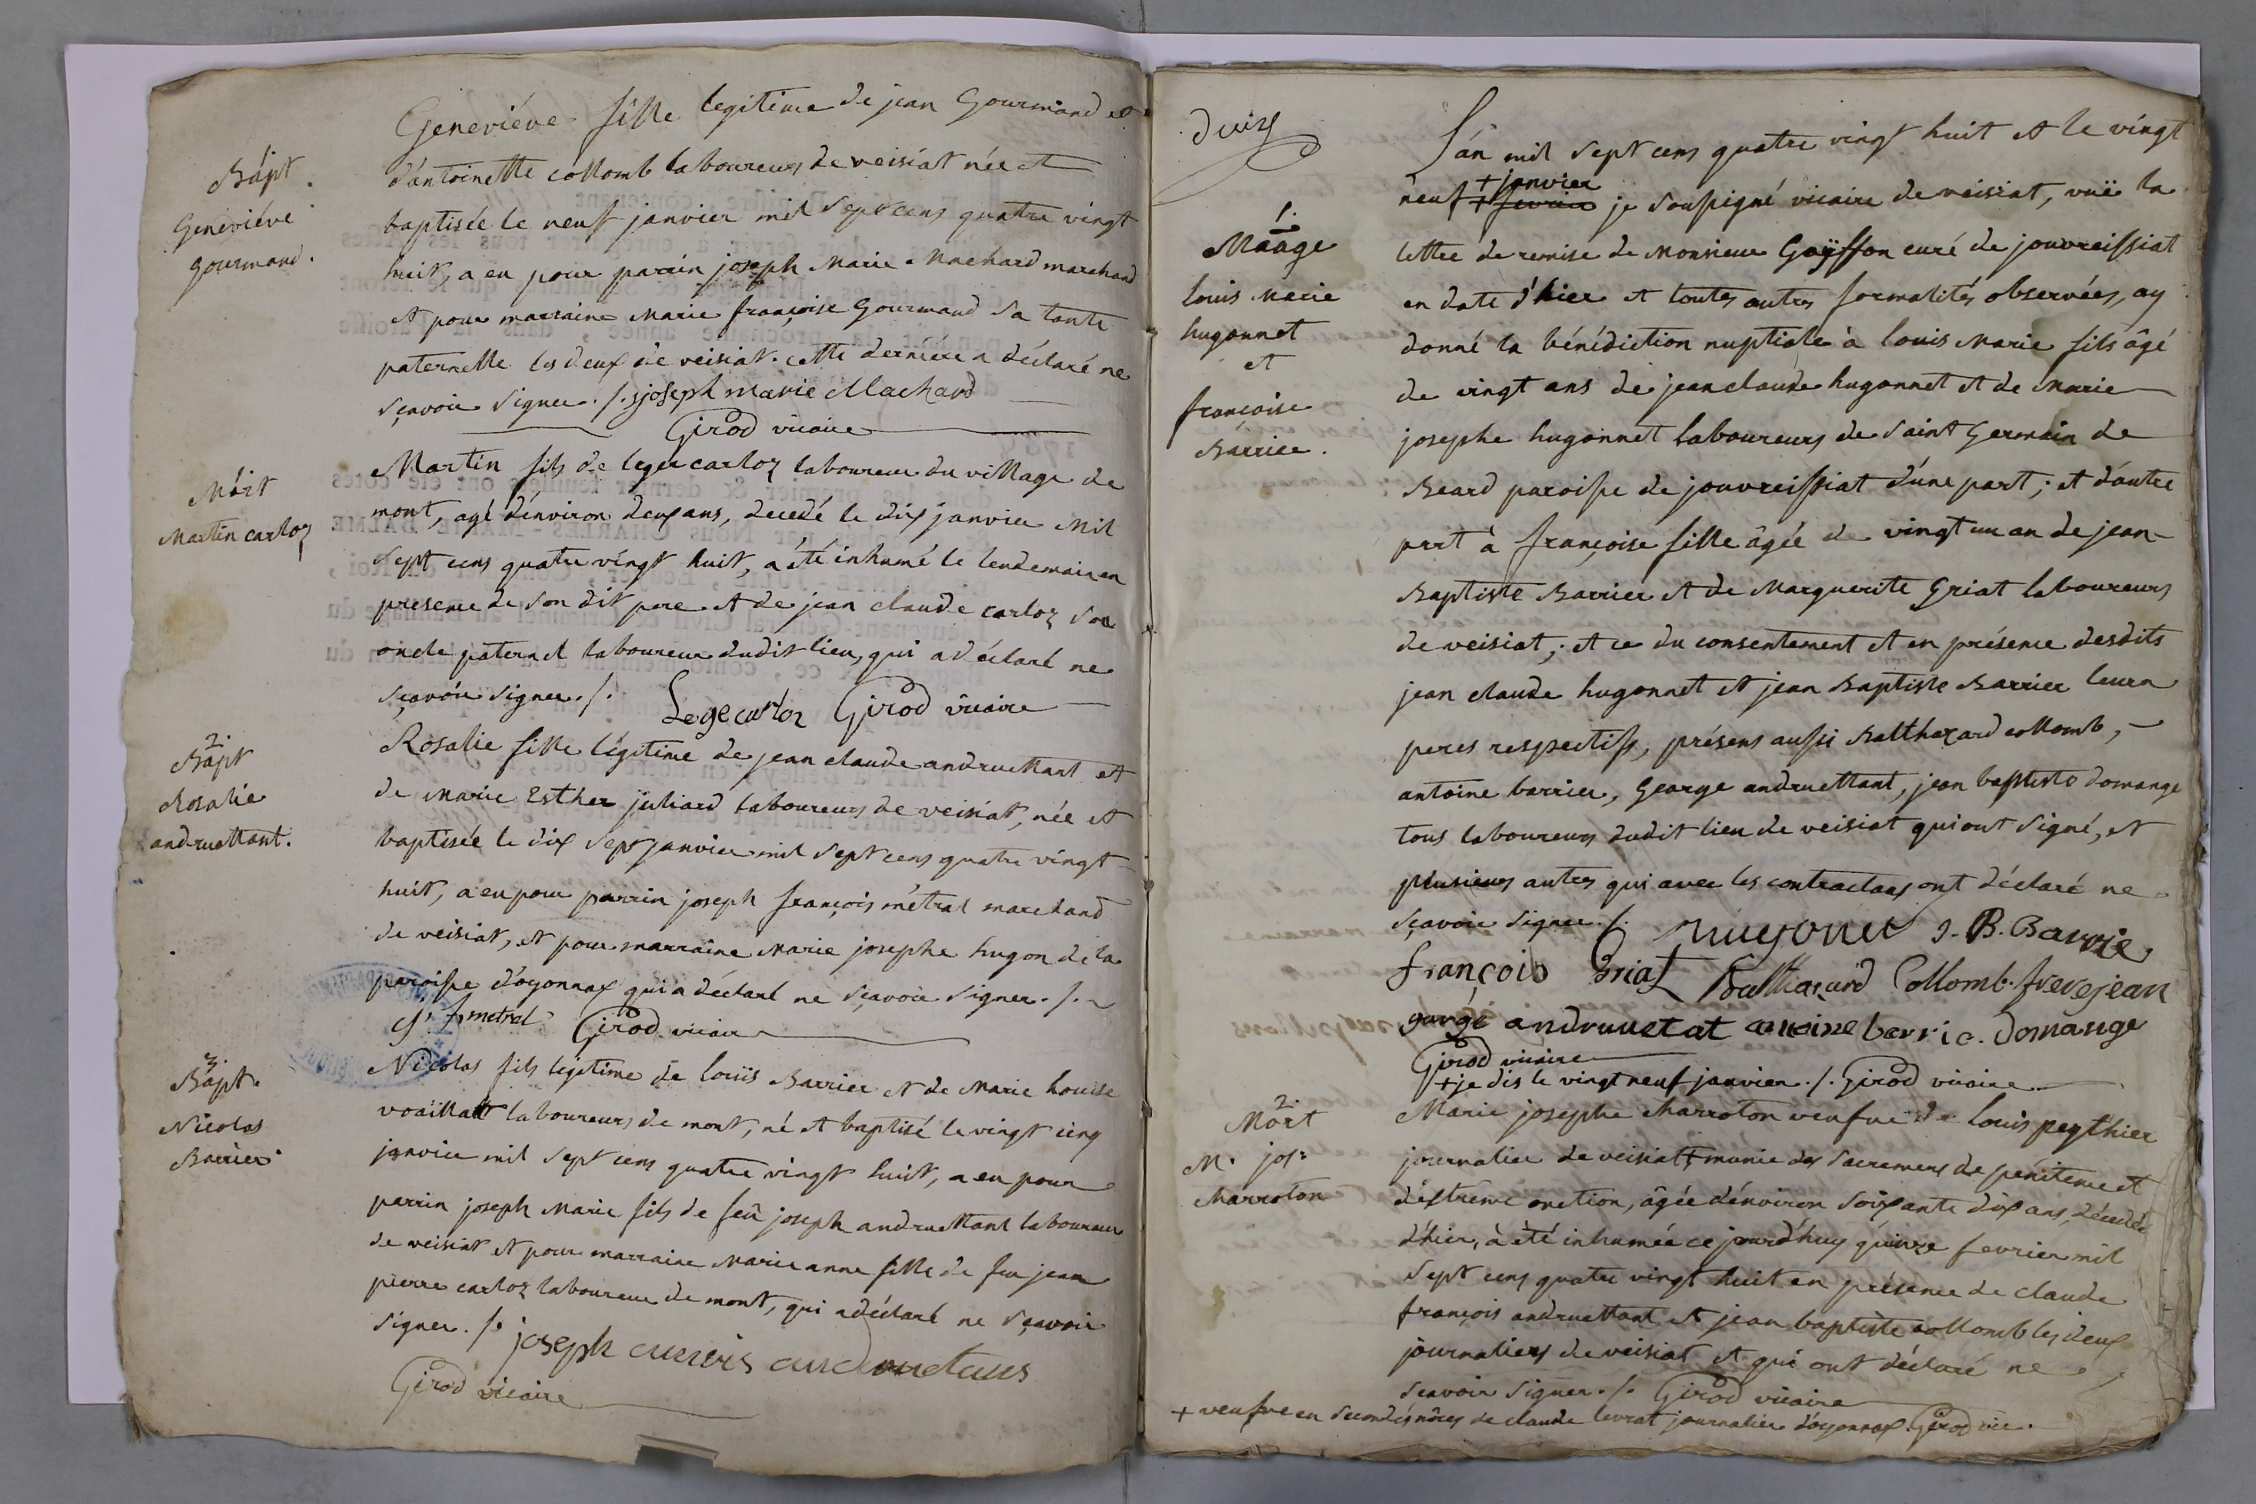 Bapt.
Geneviéve
gourmand.
Geneviéve fille legitime de jean Gourmand et
d'antoinette collomb laboureurs de veisiat née et
baptisée le neuf janvier mil sept cens quatre vingt
huit, a eu pour parrin joseph Marie Machard marchand
et pour marraine Marie françoise Gourmand sa tante
paternelle les deux de veisiat. cette derniére a déclaré ne
sçavoir signer ./. joseph marie Machard
Girod vicaire
Mort
Martin carloz
Martin fils de leger carloz laboureur du village de
mont, agé d'environ deux ans, decedé le dix janvier mil
sept cens quatre vingt huit, a été inhumé le lendemain en
presence de son dit pere et de jean claude carloz son
oncle paternel laboureur dudit lieu, qui a déclaré ne
sçavoir signer ./. Lege carloz Girod vicaire
2.
Bapt
Rosalie
andruettant.
Rosalie fille légitime de jean claude andruettant et
de Marie Esther juliard laboureurs de veisiat, née et
baptisée le dix sept janvier mil sept cens quatre vingt
huit, a eu pour parrin joseph françois métral marchand
de veisiat, et pour marraine Marie josephe hugon de la
paroisse d'oyonnax qui a déclaré ne sçavoir signer ./.
j. f. metral Girod vicaire
3.
Bapt.
Nicolas
Barrier
Nicolas fils legitime de louis Barrier et de Marie louise
voäillat laboureurs de mont, né et baptisé le vingt cinq
janvier mil sept cens quatre vingt huit, a eu pour
parrin joseph Marie fils de feû joseph andruettant laboureur
de veisiat et pour marraine Marie anne fille de feu jean
pierre carloz laboureur de mont, qui a déclaré ne sçavoir
signer ./. joseph
Girod vicaire
1.
Mâage
louis Marie
hugonnet
et
françoise
Barrier.
L'an mil sept cens quatre vingt huit et le vingt
+ janvier
neuf + fevrier je soussigné vicaire de veisiat, vuë la
lettre de remise de Monsieur Goÿffon curé de jouvreissiat
en date d'hier et toutes autres formalités observées, ay
donné la bénédiction nuptiale à louis Marie fils âgé
de vingt ans de jean claude hugonnet et de Marie
josephe hugonnet laboureurs de saint Germain de
Beard paroisse de jouvreissiat d'une part ; et d'autre
part à françoise fille âgée de vingt un an de jean-
Baptiste Barrier et de Marguerite Griat laboureurs
de veisiat ; et ce du consentement et en présence desdits
jean claude hugonnet et jean Baptiste Barrier leurs
peres respectifs, présens aussi Balthazard collomb,
antoine barrier, George andruettant, jean baptiste domange
tous laboureurs dudit lieu de veisiat qui ont signé, et
plusieurs autres qui avec les contractans ont déclaré ne
sçavoir signer ./. hugonet J. B. Barrie
françois Griat Balthazard Collomb. frerejean
gorge andruuetat antoine barrie. Domange
Girod vicaire
+ je dis le vingt neuf janvier ./. Girod vicaire
2.
Mort
M. jos:
charroton
Marie josephe charroton veufve de louis peythier
journalier de veisiat + munie des sacremens de pénitence et
d'extrême onction, âgée d'environ soixante dix ans, décedée
d'hier, a été inhumée ce jourd'huy quinze fevrier mil
sept cens quatre vingt huit en présence de claude
françois andruettant et jean baptiste collomb les deux
journaliers de veisiat et qui ont déclaré ne
sçavoir signer ./. Girod vicaire
+ veufve en secondes nôces de claude levrat journalier d'oyonnax. Girod vic.